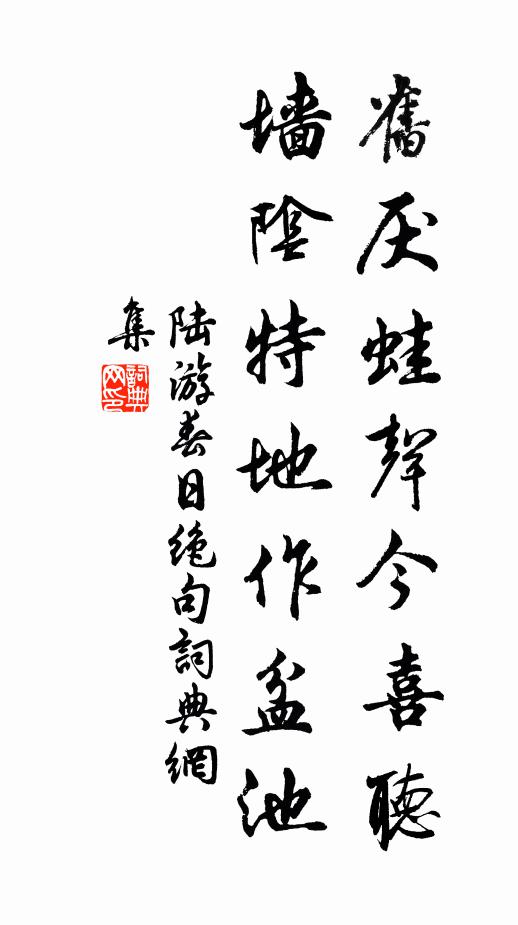 舊厌蛙聲今喜聽
墙陰特地作盆池
陆游春日绝句詞典網
集
詞典
网印